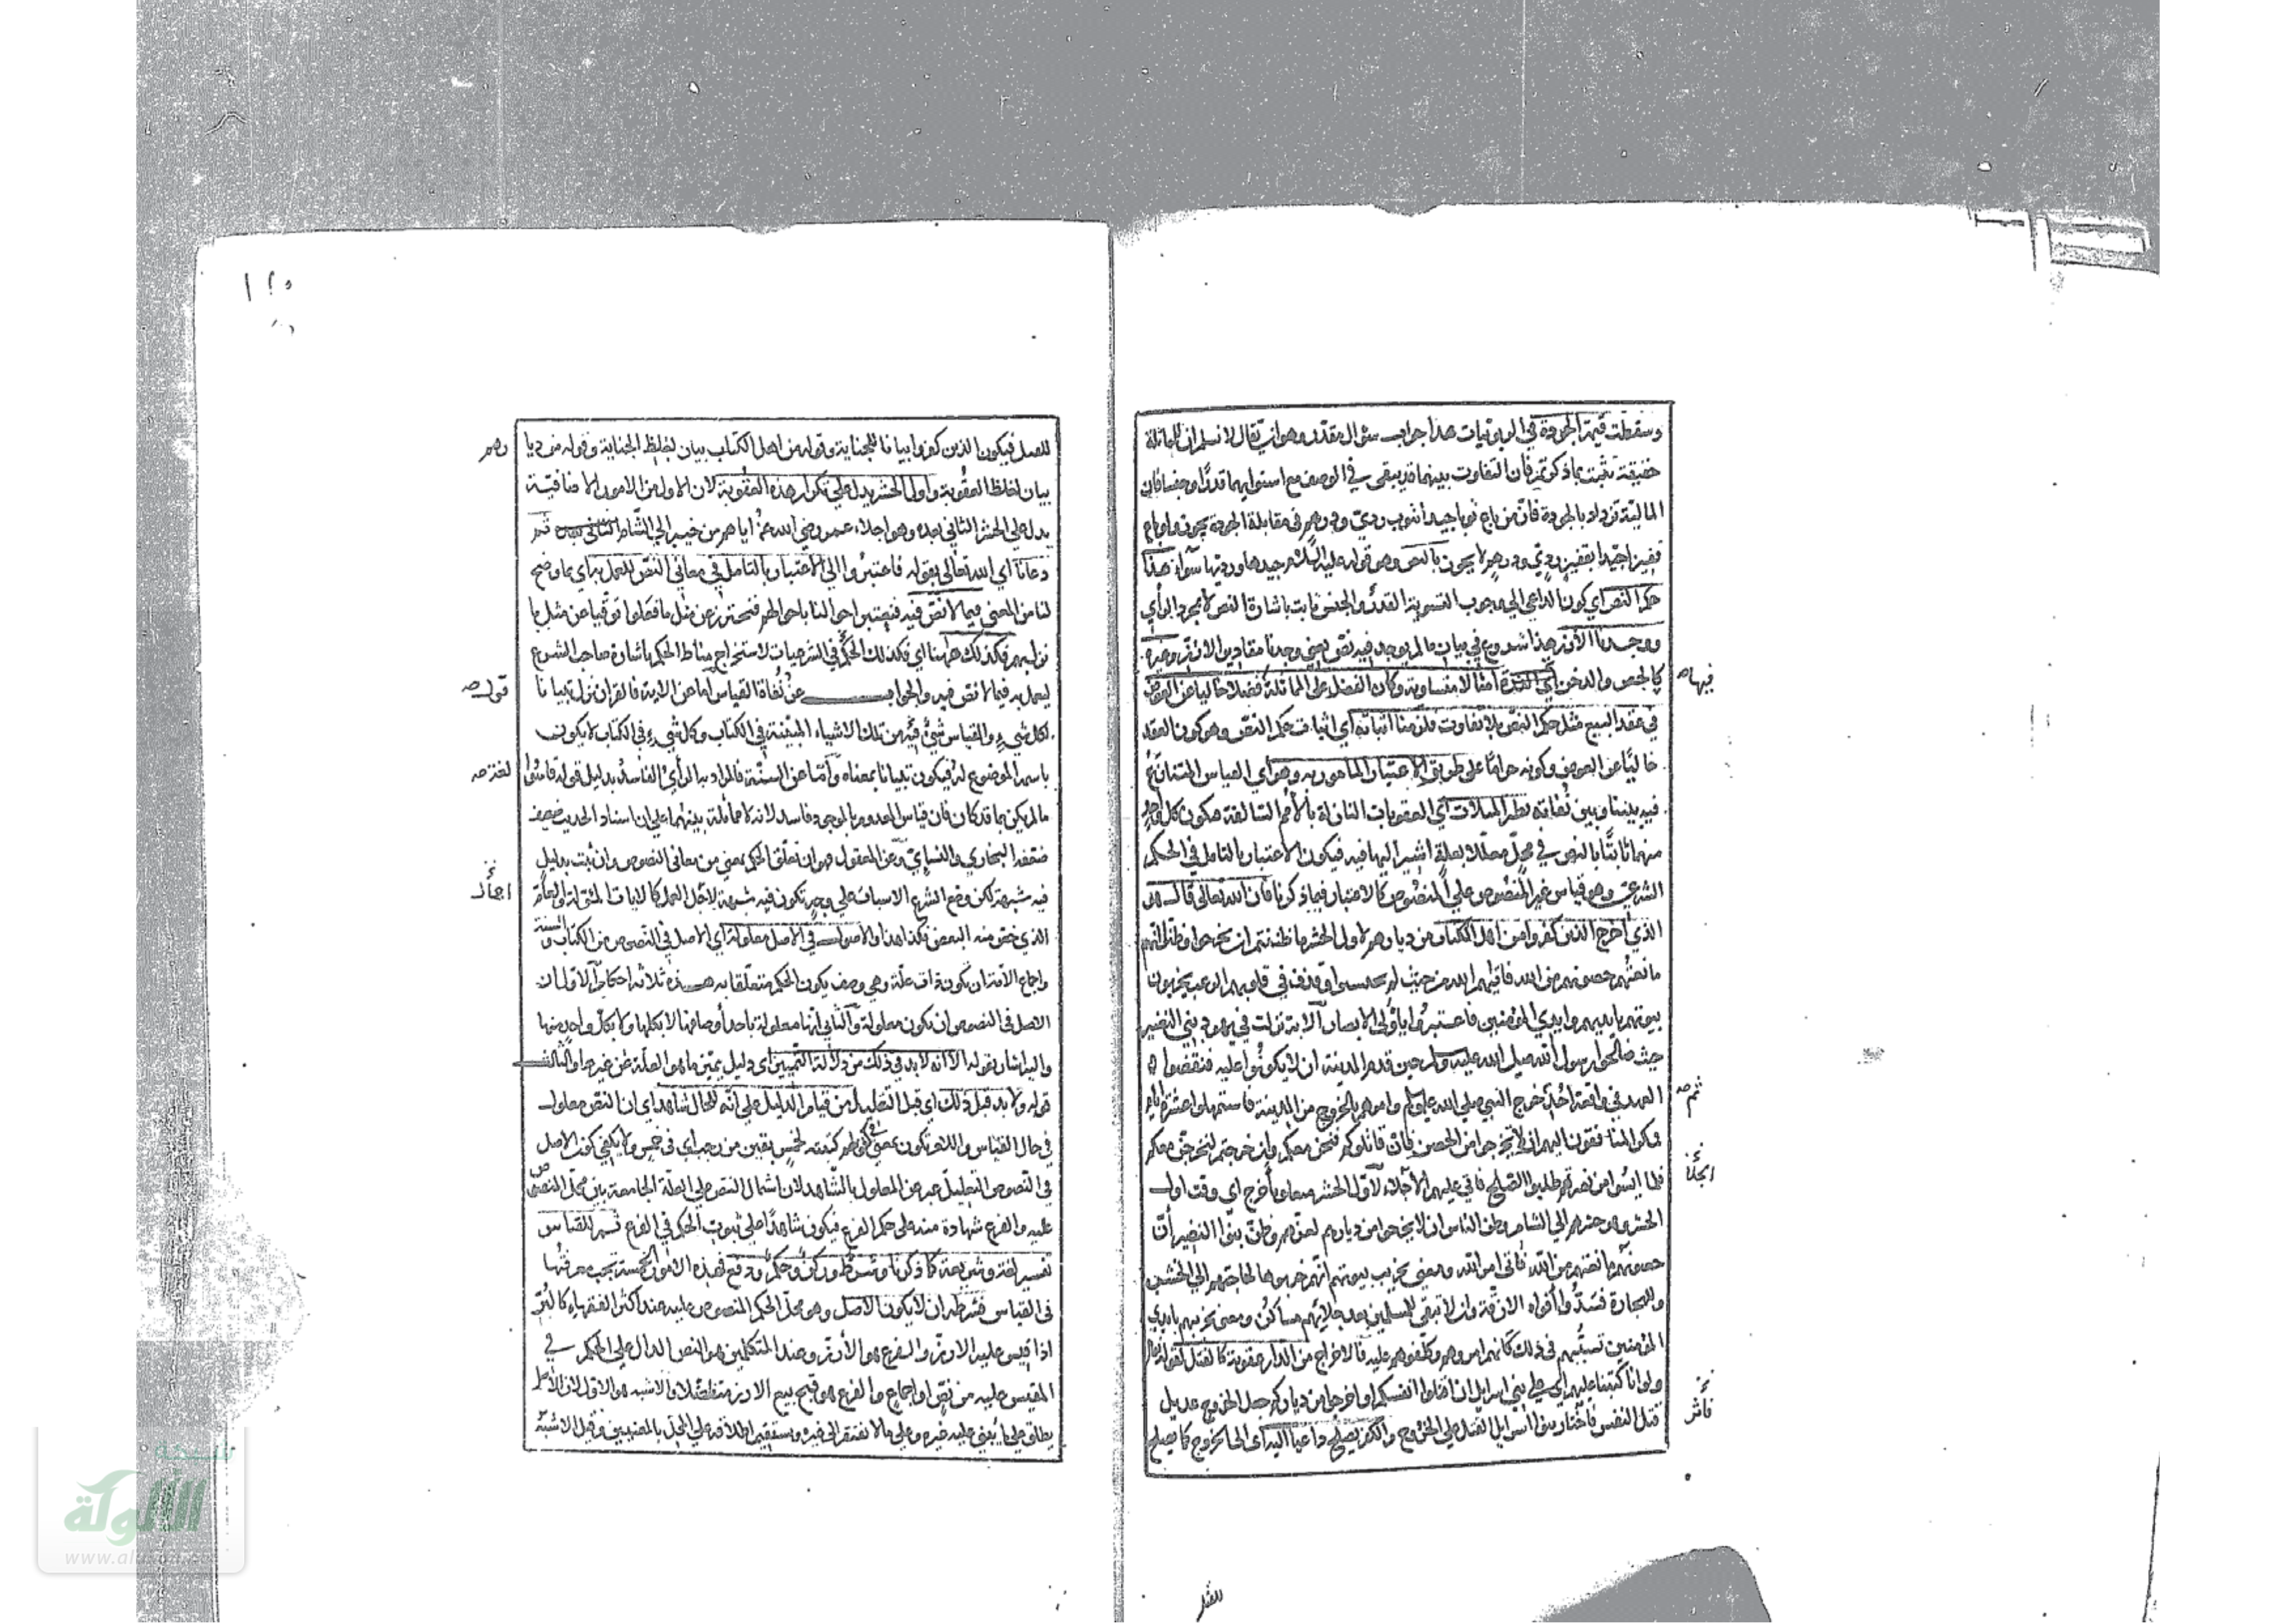 وسقطت قيمة الجودة في الربويات هذا جواب سؤال مقدر وهو ان يقال لا نسلم ان المماثلة
حقيقة تثبت بما ذكرتم فان التفاوت بينهما قد يبقى في الوصف مع استوائهما قدرًا وجنسا فان
المالية تزداد بالجودة فانّ من باع ثوبا جيدا بثوب ردي ودرهم في مقابلة الجودة يجوز ولو باع
قفيزا جيّدا بقفيز ردي ودرهم لا يجوز بالنص وهو قوله عليه السلام جيدها ورديها سواء هذا
حكم النص اي كون الداعي الي وجوب التسوية القدر والجنس ثابت باشارة النص لا بمجرد الرأي
ووجدنا الأرز هذا شروع في بيان ما لم يوجد فيه نص يعني وجدنا مقادير الارز وغيره
فيها صح
كالجص والدخن اي القدرة امثالا متساوية وكان الفضل علي المماثلة فضلا خاليا عن العوض
في عقد البيع مثل حكم النص بلا تفاوت فلزمنا اثباته اي اثبات حكم النص وهو كون العقد
خاليًا عن العوض وكونه حرامًا علي طريق الاعتبار المامور به وهو اي القياس المتنازع
فيه بيننا وبين نفاته نظير المثلات اي العقوبات النازلة بالأمم السالفة فيكون كل واحد
منهما ثابتًا بالنص في محل معللا بعلة اشير اليها فيه فيكون الاعتبار بالتامل في الحكم
الشرعي وهو قياس غير المنصوص علي المنصوص كالاعتبار فيما ذكرنا فان الله تعالى قال هو
الذي أخرج الذين كفروا من اهل الكتاب من ديارهم لاول الحشر ما ظننتم ان يخرجوا وظنوا انهم
مانعتهم حصونهم من الله فاتيهم الله من حيث لم يحتسبوا وقذف في قلوبهم الرعب يخربون
بيوتهم بايديهم وايدي المؤمنين فاعتبروا يا أولي الابصار الآية نزلت في يهود بني النضير
حيث صالحوا رسول الله صلى الله عليه وسلم حين قدم المدينة ان لا يكونوا عليه فنقضوا
ثم صح
العهد في واقعة أحد خرج النبي صلي الله عليه وسلم وامرهم بالخروج من المدينة فاستمهلوا عشرة أيام
انجلا
فلما ايسوا من نصرتهم طلبوا الصلح فابي عليهم الا الجلاء لاوّل الحشر متعلق بأخرج اي وقت اول
الحشر وهو حشرهم الي الشام وظن الناس ان لا يخرجوا من ديارهم لعزهم وظن بنو النضير أن
حصونهم مانعتهم من الله فأتى امر الله ومعني تخريب بيوتهم انهم خربوها لحاجتهم الي الخشب
والحجارة فسدّوا أفواه الازقة وان لا تبقي للمسلمين بعد جلائهم مساكن ومعنى تخريبهم بايدي
المؤمنين تسببهم في ذلك كانهم امروهم وكلفوهم عليه فالاخراج من الدار عقوبة كالقتل لقوله تعالى
ولو انا كتبنا عليهم اي علي بني اسرايل ان اقتلوا انفسكم او اخرجوا من دياركم جعل الخروج عديل
فاثر
قتل النفس فاختار بنوا اسرايل القتل علي الخروج والكفر يصلح داعيا اليه اى الى الخروج كما يصلح
للقتل
للقتل فيكون الذين كفروا بيانا للجناية وقوله من اهل الكتاب بيان لغلظ الجناية وقوله من ديا
رهم
بيان لغلظ العقوبة واول الحشر يدل علي تكرار هذه العقوبة لان الاول من الامور الاضافية
يدل علي الحشر الثاني بعده وهو اجلاء عمر رضي الله عنه اياهم من خيبر الي الشام ثم
دعانا اي الله تعالى بقوله فاعتبروا الي الاعتبار بالتامل في معاني النص للعمل به اي بما وضح
لنا من المعني فيما لا نص فيه فنعتبر احوالنا باحوالهم فنحترز عن مثل ما فعلوا توقيا عن مثل ما
نزل بهم فكذلك هاهنا اي فكذلك الحكم في الشرعيات لاستخراج مناط الحكم باشارة صاحب الشرع
ليعمل به فيما لا نص فيه والجواب عن نفاة القياس اما عن الاية فالقران نزل تبيانا
قوله صح
لكل شيء والقياس شيء فيه من تلك الاشياء المبيّنة في الكتاب وكل شيء في الكتاب لا يكون
باسمه الموضوع له فيكون تبيانا بمعناه وأمّا عن السنّة فالمراد به الرأي الفاسد بدليل قوله قاسوا
ما لم يكن بما قد كان فان قياس المعدوم بالموجود فاسد لانه لا مماثلة بينهما علي ان اسناد الحديث ضعيف
ضعفه البخاري والنسائي وعن المعقول فهو ان تعلق الحكم بمعني من معاني النصوص وان ثبت بدليل
فيه شبهة لكن وضع الشرع الاسباب علي وجه تكون فيه شبهة لاجل العمل كالايات المؤولة والعام
الذي خص منه البعض فكذا هذا والاصول في الاصل معلولة اي الاصل في النصوص من الكتاب والسنة
واجماع الامة ان تكون ذوات علّة وهي وصف يكون الحكم متعلقا به هذه ثلاثة احكام الاول ان
الاصل في النصوص ان تكون معلولة والثاني انها معلولة باحد أوصافها لا بكلها ولا بكل واحد منها
واليه اشار بقوله الا انه لا بد في ذلك من دلالة التمييز اي دليل يميز ما هو العلة عن غيرها والثالث
قوله ولا بد قبل ذلك اي قبل التعليل من قيام الدليل علي انه للحال شاهد اي ان النص معلول
في حال القياس واللام تكون بمعنى في كقولهم كتبته لخمس بقين من رجب اي في خمس ولا يكفي كون الاصل
في النصوص التعليل عبر عن المعلول بالشاهد لان اشتمال النص علي العلة الجامعة بين محل النص
عليه والفرع شهادة منه على حكم الفرع فيكون شاهدًا علي ثبوت الحكم في الفرع ثم للقياس
تفسير لغة وشريعة كما ذكرنا وشرط وركن وحكم ودفع فهذه الامور الخمسة يجب معرفتها
في القياس فشرطه ان لا يكون الاصل وهو محل الحكم المنصوص عليه عند اكثر الفقهاء كالبر
اذا قيس عليه الارز والفرع هو الأرز وعند المتكلمين هو النص الدال علي الحكم في
المقيس عليه من نص او اجماع والفرع هو قبح بيع الارز متفاضلا والاشبه هو الاول لان الأصل
يطلق علي ما يبنى عليه غيره وعلي ما لا يفتقر الى غيره ويستقيم اطلاقه علي المحل بالمعنيين وقيل الاشبه
الألوكة